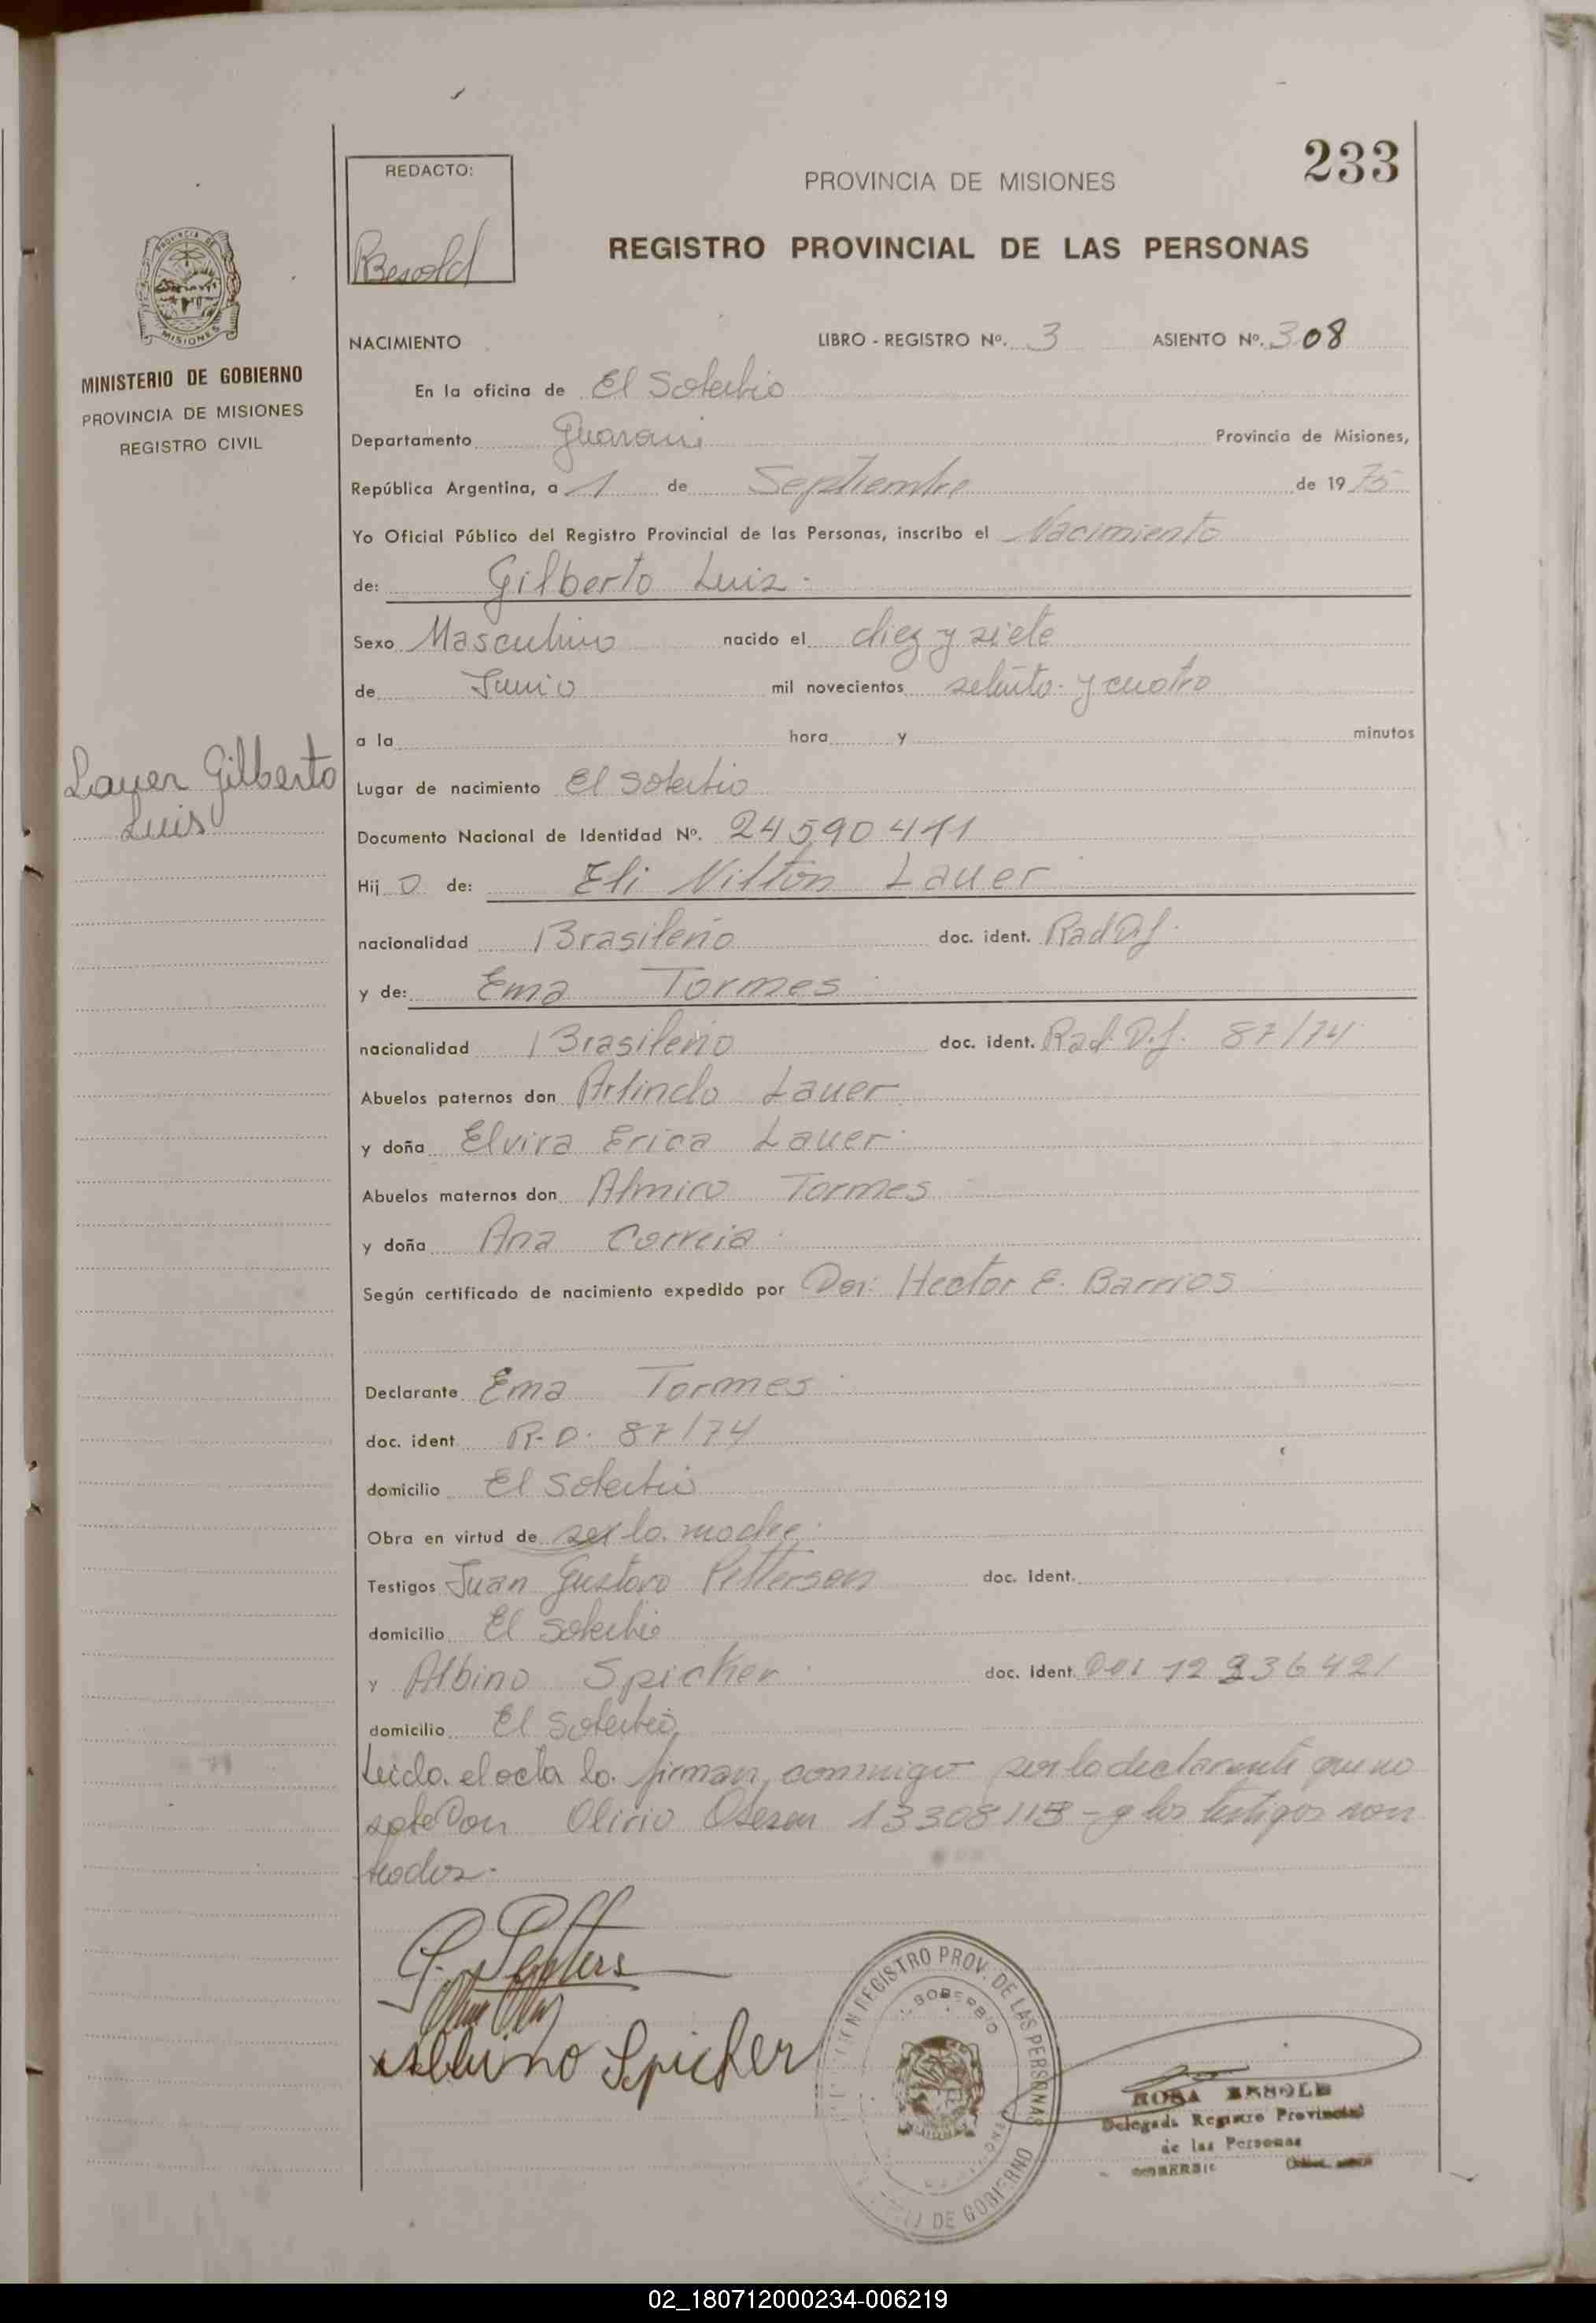 233
REDACTO:
Besold
PROVINCIA DE MISIONES
REGISTRO PROVINCIAL DE LAS PERSONAS
PROVINCIA DE
MISIONES
MINISTERIO DE GOBIERNO
PROVINCIA DE MISIONES
REGISTRO CIVIL
Lauer Gilberto
Luis
NACIMIENTO LIBRO - REGISTRO Nº. 3 ASIENTO Nº. 308
En la oficina de El Soberbio
Departamento Guarani Provincia de Misiones,
República Argentina, a 1 de Septiembre de 1975
Yo Oficial Público del Registro Provincial de las Personas, inscribo el Nacimiento
de: Gilberto Luis.
Sexo Masculino nacido el diez y siete
de Junio mil novecientos setenta y cuatro
a la hora y minutos
Lugar de nacimiento El Soberbio
Documento Nacional de Identidad Nº. 24590411
Hij o de: Eli Nilton Lauer
nacionalidad Brasileño doc. ident.
y de: Ema Tormes
nacionalidad Brasileño doc. ident. Rad. D.f. 87/74
Abuelos paternos don Arlindo Lauer
y doña Elvira Erica Lauer
Abuelos maternos don Almiro Tormes
y doña Ana Correia
Según certificado de nacimiento expedido por Don: Hector E. Barrios
Declarante Ema Tormes
doc. ident R-D. 87/74
domicilio El Soberbio
Obra en virtud de ser la madre.
Testigos Juan Gustavo Petterson doc. ident.
domicilio El Soberbio
y Albino Spicker doc. ident. DNI 12 936421
domicilio El Soberbio
Leida el acta la firman conmigo por la declarante que no
sabe Don Olirio 13308113 - y los testigos nom
brados.
Albino Spicker
REGISTRO PROV. DE LAS PERSONAS
SOBERBIO
DE GOBIERNO
ROSA BESOLD
Delegada Registro Provincial
de las Personas
SOBERBIO
02_180712000234-006219